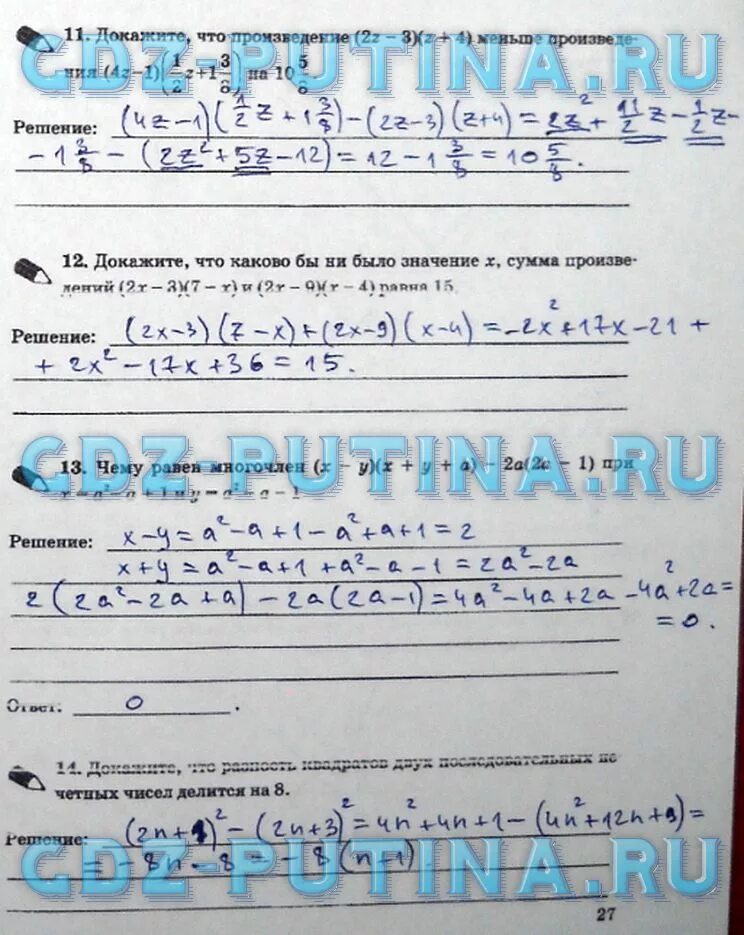 11. Докажите, что произведение (2z − 3)(z + 4) меньше произведе-
ния (4z−1)(1/2 z+1 3/8) на 10 5/8.
GDZ-PUTINA.RU
Решение: (4z−1)(1/2 z+1 3/8)−(2z−3)(z+4)=2z²+11/2 z−1/2 z−
−1 3/8−(2z²+5z−12)=12−1 3/8=10 5/8.
12. Докажите, что каково бы ни было значение x, сумма произве-
дений (2x − 3)(7 − x) и (2x − 9)(x − 4) равна 15.
Решение: (2x−3)(7−x)+(2x−9)(x−4)=−2x²+17x−21+
+2x²−17x+36=15.
GDZ-PUTINA.RU
13. Чему равен многочлен (x − y)(x + y + a) − 2a(2a − 1) при
x = a² − a + 1 и y = a² − a − 1
Решение: x−y=a²−a+1−a²+a+1=2
x+y=a²−a+1+a²−a−1=2a²−2a
2(2a²−2a+a)−2a(2a−1)=4a²−4a+2a−4a²+2a=
=0.
Ответ: 0.
14. Докажите, что разность квадратов двух последовательных не
четных чисел делится на 8.
Решение: (2n+1)²−(2n+3)²=4n²+4n+1−(4n²+12n+9)=
=−8n−8=−8(n+1).
GDZ-PUTINA.RU
27